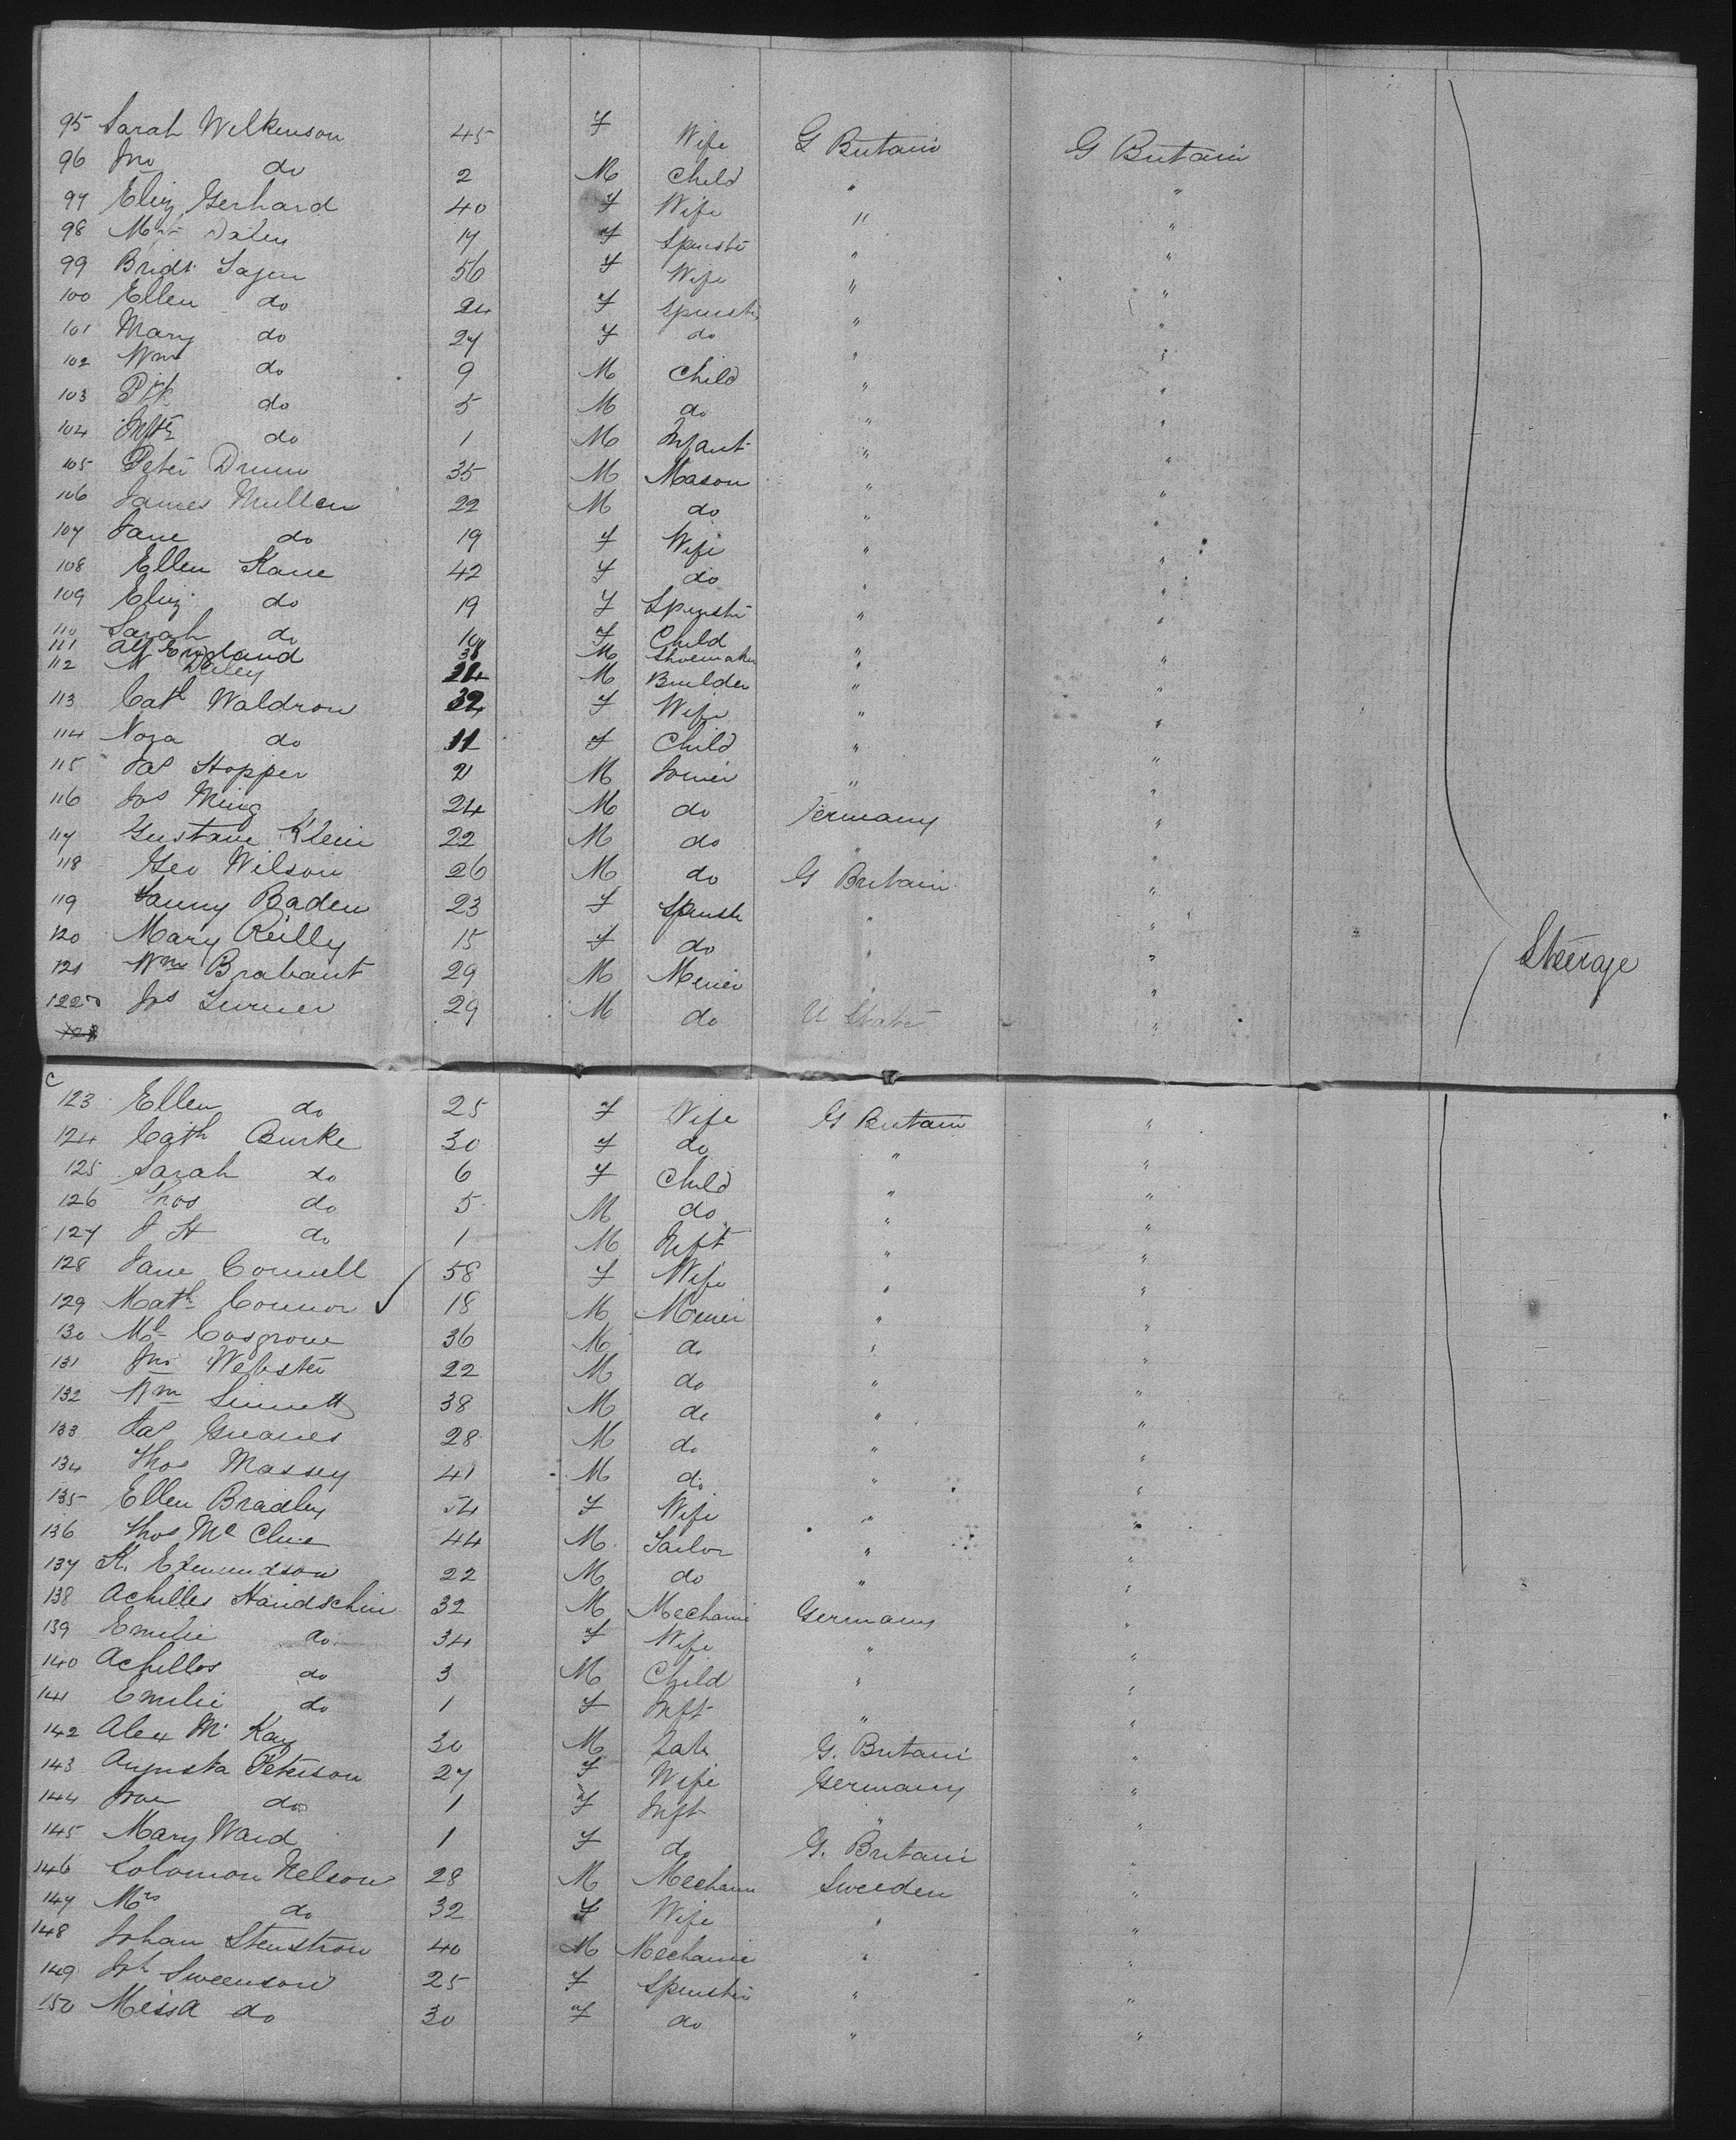 95 Sarah Wilkinson 45 F Wife G Britain G Britain
96 Jno do 2 M Child " "
97 Eliz Gerhard 40 F Wife " "
98 Daley 17 F Spinstr " "
99 Bridt 56 F Wife " "
100 Ellen do 24 F Spinstr " "
101 Mary do 27 F do " "
102 Wm do 9 M Child " "
103 Ptk do 5 M do " "
104 do 1 M Infant " "
105 Peter Drum 35 M Mason " "
106 James Mullen 22 M do " "
107 Jane do 19 F Wife " "
108 Ellen Kane 42 F do " "
109 Eliz do 19 F Spinstr " "
110 Sarah do 10 F Child " "
111 Alf England 38 M Shoemaker " "
112 Daley M Builder " "
113 Cath Waldron 32 F Wife " "
114 Nora do 11 F Child " "
115 Jas Hopper 21 M Joiner " "
116 Jos Ming 24 M do Germany "
117 Gustave Klein 22 M do " "
118 Geo Wilson 26 M do G Britain "
119 Fanny Baden 23 F Spinstr " "
120 Mary Reilly 15 F do " "
121 Wm Brabant 29 M Miner " "
Steerage
122 Jos Turner 29 M do U States "
123 Ellen do 25 F Wife G Britain "
124 Cath Burke 30 F do " "
125 Sarah do 6 F Child " "
126 Thos do 5 M do " "
127 J H do 1 M Inft " "
128 Jane Connell 58 F Wife " "
129 Math Connor 18 M Miner " "
130 Ml Cosgrove 36 M do " "
131 Jno Webster 22 M do " "
132 Wm Sinnett 38 M do " "
133 Jas Greaves 28 M do " "
134 Thos Massey 41 M do " "
135 Ellen Bradley 54 F Wife " "
136 Thos Mc 44 M Tailor " "
137 K. Edmundson 22 M do " "
138 Achilles Handschin 32 M Mechanic Germany "
139 Emilie do 34 F Wife " "
140 Achilles do 3 M Child " "
141 Emilie do 1 F Inft " "
142 Alex Mc Kay 30 M Lab G. Britain "
143 Augusta Peterson 27 F Wife Germany "
144 do 1 F Inft " "
145 Mary Ward 1 F do G. Britain "
146 Solomon Nelson 28 M Mechanic Sweeden "
147 Mrs do 32 F Wife " "
148 Johan Stenstrom 40 M Mechanic " "
149 Joh Sweenson 25 F Spinstr " "
150 do 30 F do " "